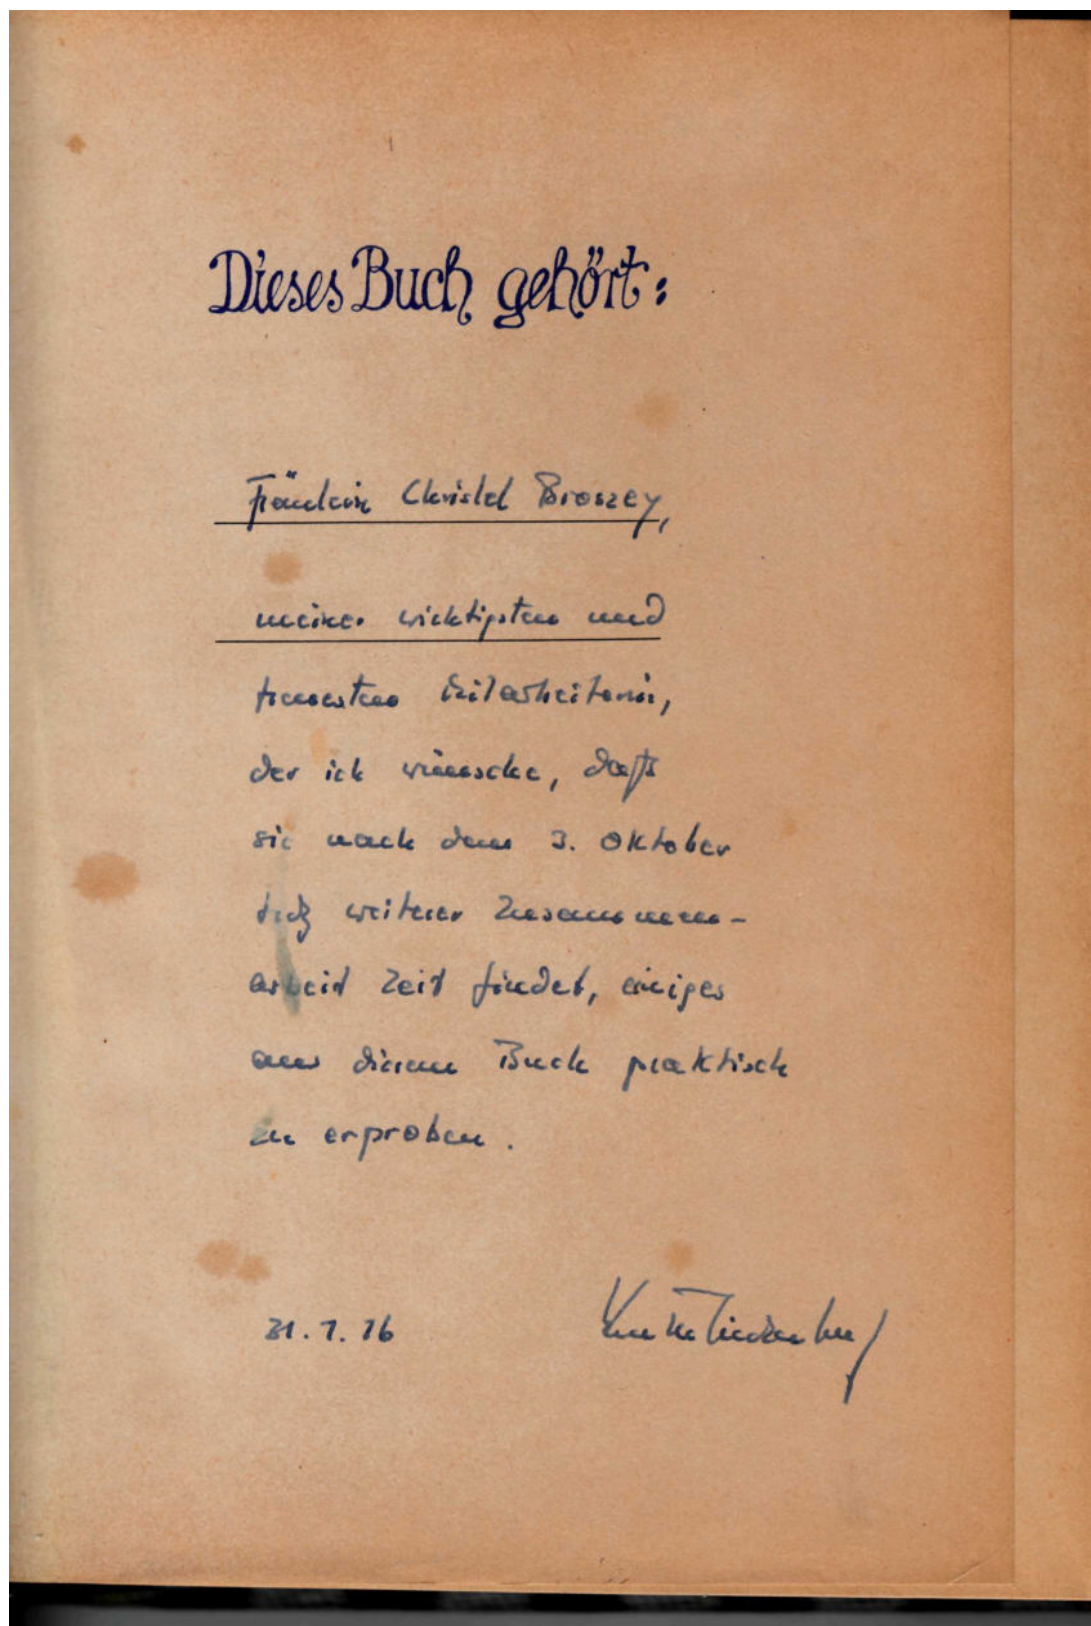 Dieses Buch gehört:
Fräulein Christel Broszey,
meiner wichtigsten und
treuesten Mitarbeiterin,
der ich wünsche, daß
sie nach dem 3. Oktober
trotz weiterer Zusammen-
arbeit Zeit findet, einiges
aus diesem Buch praktisch
zu erproben.
31.7.76